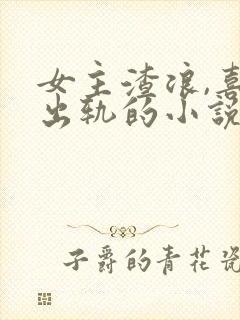 女主渣浪,喜
出轨的小説
子爵的青花瓷